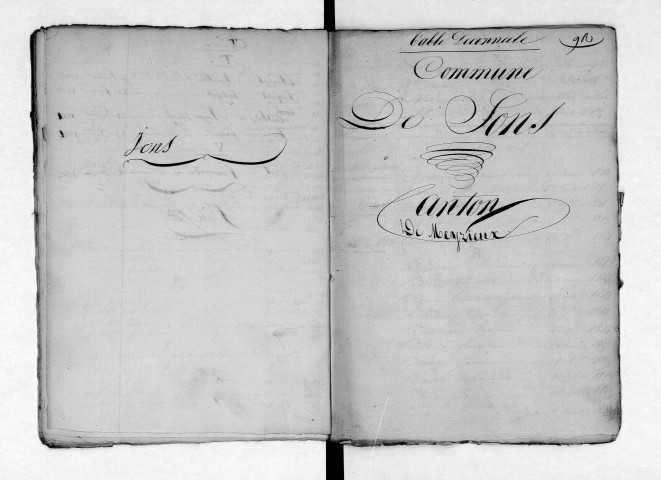 Jons
Table Decennale
Commune
De Jons
Canton
De Meyzieux